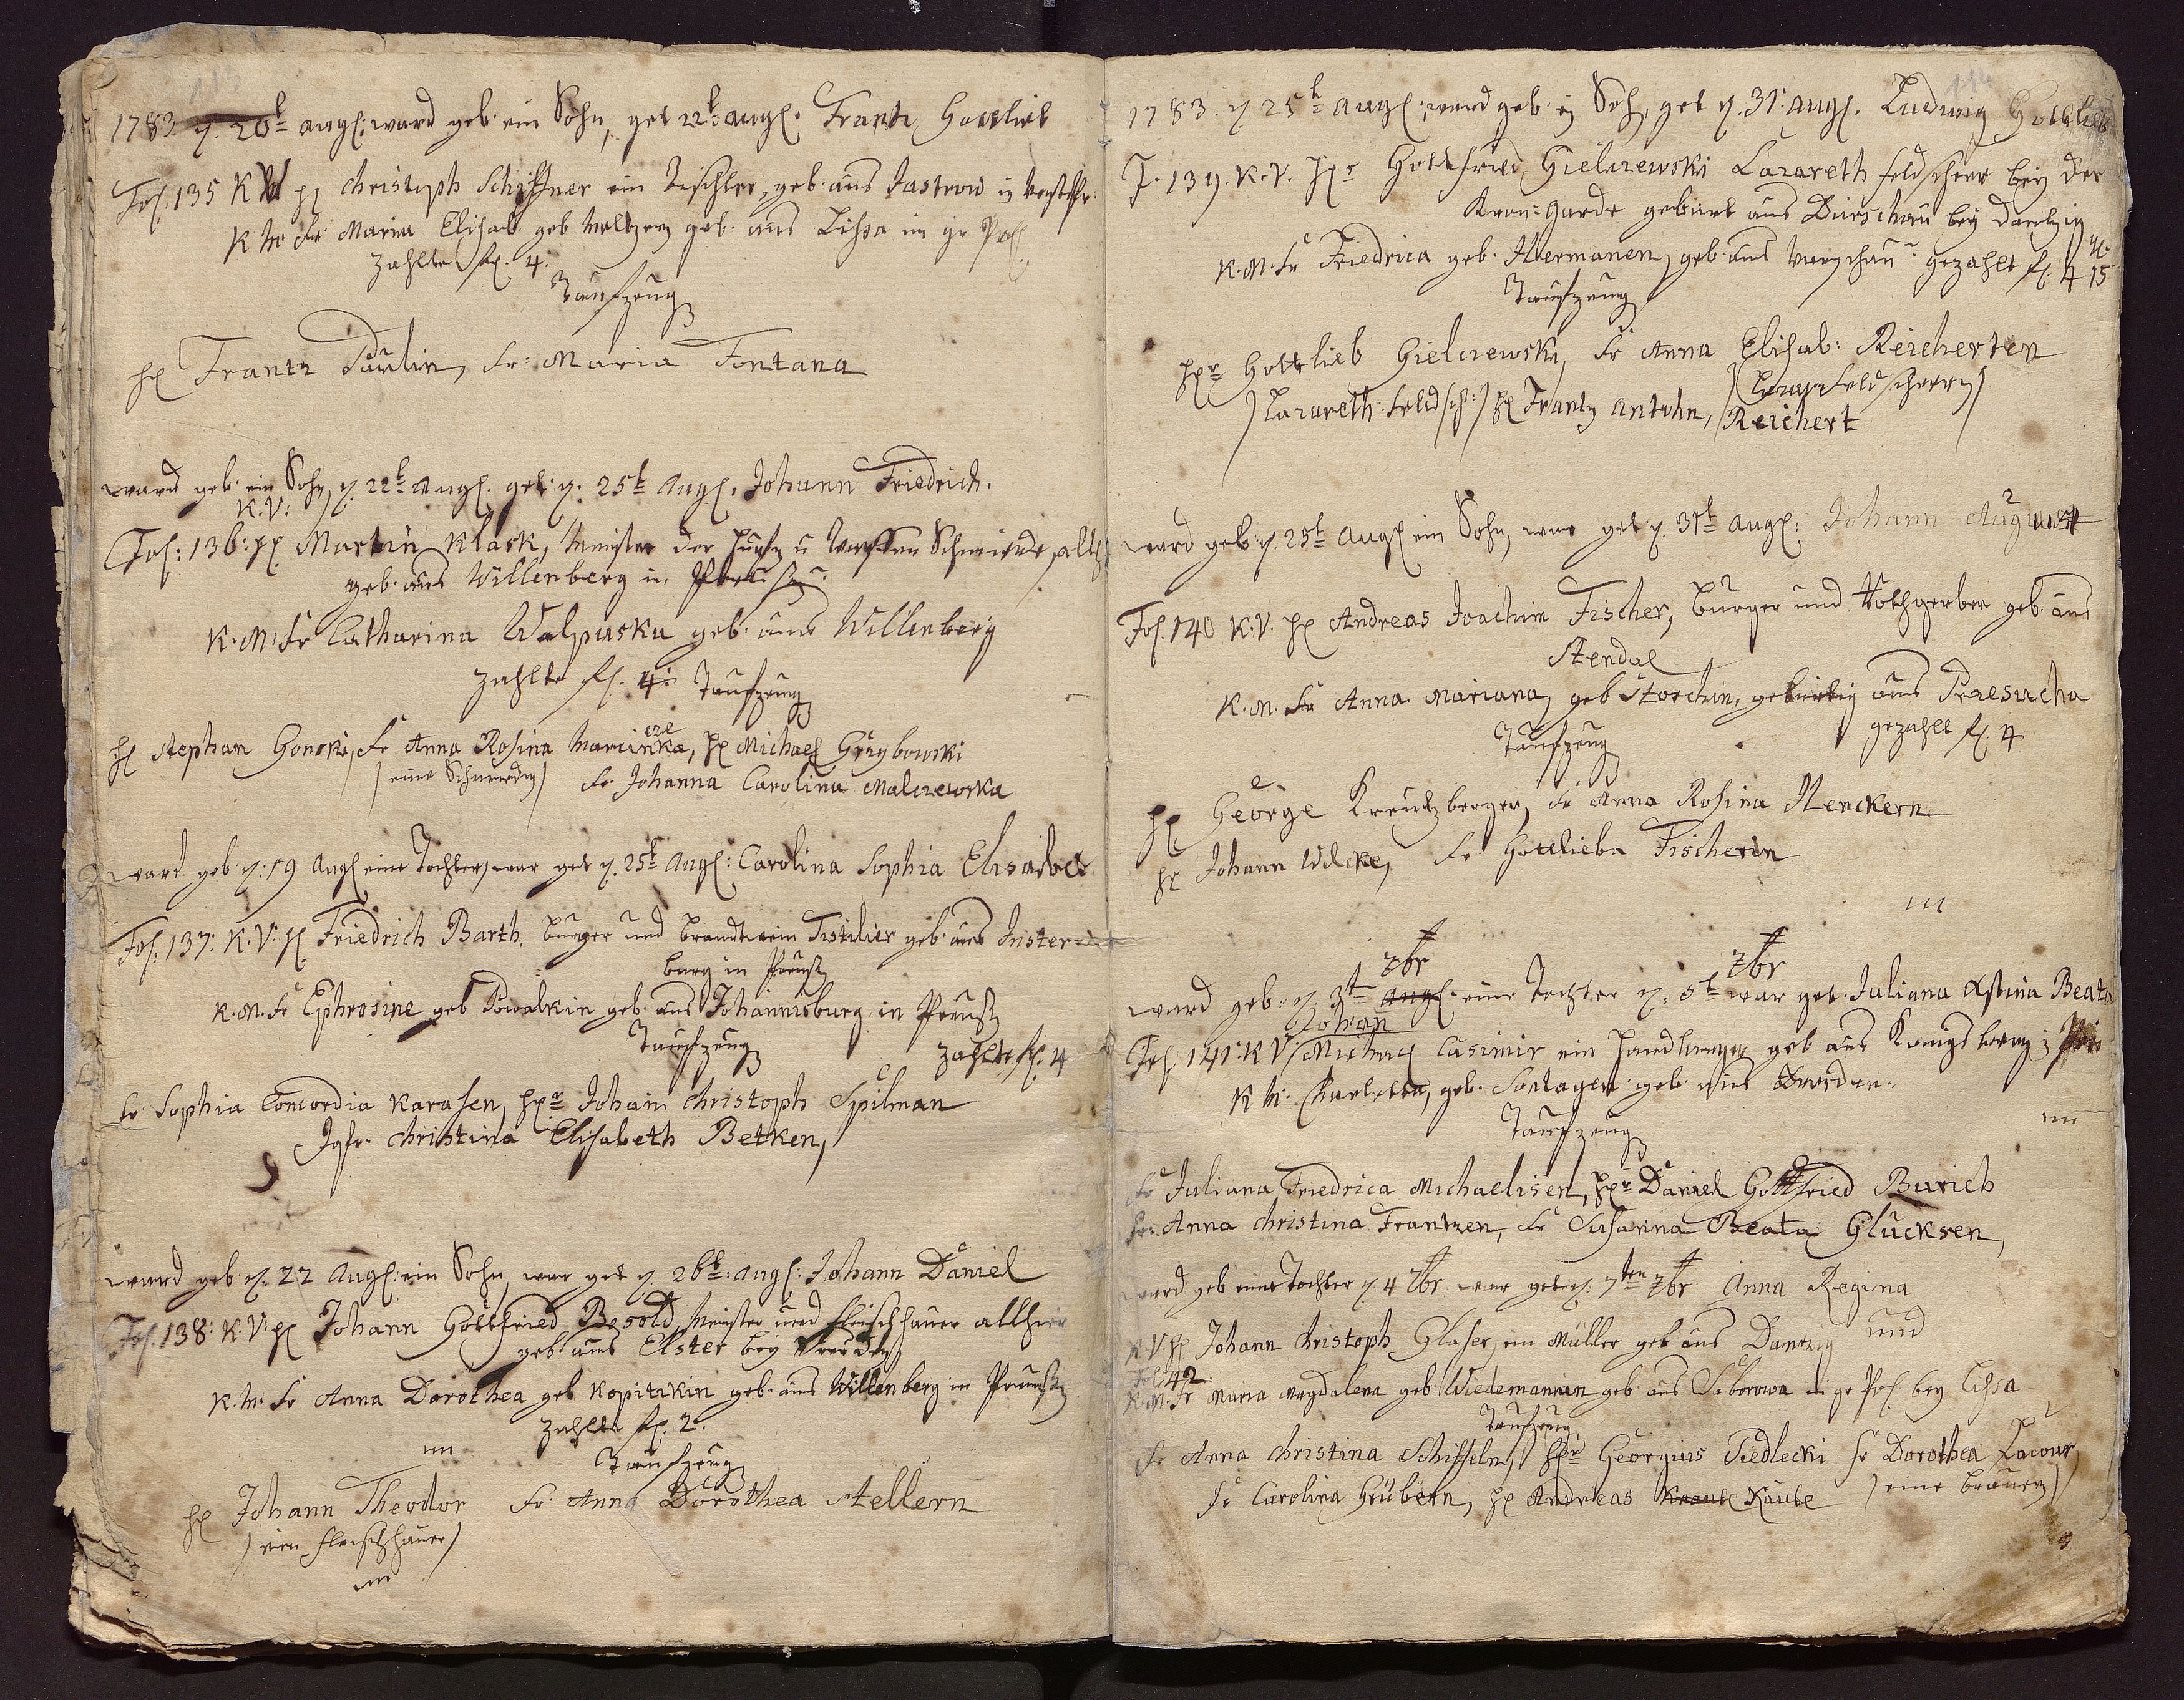 113
1783 d. 20t augl. ward geb. ein Sohn, get 22t augl. Frantz Gottlieb
Fol. 135 K V H Christoph Schiffner ein Tischler, geb. aus Jastrow in
K M Fr Maria Elisab. geb geb. aus Lissa in gr Pol.
zahlte fl. 4:
Taufzeug
H Frantz Paulin, Fr: Maria Fontana
ward geb. ein Sohn, d. 22t augl. get. d. 25t Augl. Johann Friedrich.
K.V:
Fol: 136: H. Martin Klask, Meister der Huf u Waffen Schmiede, allh
geb. aus Willenberg in
K.M. Fr Catharina Walpuska geb. aus Willenberg
zahlte fl. 4: Taufzeug
H Stephan Gonski, Fr Anna Rosina Marcinka, H Michael Grzybowski
) eine Schmiedin ) Fr Johanna Carolina Malczewska
ward geb d: 19 Augl eine Tochter, war get d. 25t Augl: Carolina Sophia Elisabet
Fol: 137: K. V. H. Friedrich Barth, burger und brandtwein Tistilier geb. aus Inster-
burg in Preuß
K.M. Fr Ephrosine geb Powalkin geb. aus Johannisburg in Preuß
Taufzeug zahlte fl. 4
Fr Sophia Concordia Karasen, Hr Johann Christoph Spilman
Jgfr. Christina Elisabeth Betken,
ward geb d. 22 Augl: ein Sohn, war get d. 26t: augl: Johann Daniel
Fol. 138: K. V: H Johann Gottfried Bzsold, Meister und fleischhauer allhier
geb. aus Elster bey
K.M. Fr Anna Dorothea geb Kopitzkin geb. aus Willenberg in Preuß
zahlte fl. 2.
Taufzeug
H Johann Theodor Fr. Anna Dorothea Stellern
) ein fleischhauer )
114
1783. d. 25t augl. ward geb. ein Soh, get d. 31t augl. Ludwig Gottlieb
F. 139. K. V. Hr Gottfried Gielczewski Lazareth feldscheer bey der
Kron-Garde gebürt aus Dirschau bey Dantzig
K.M. Fr Friedrica geb. Hermanen, geb. aus Warschau gezahlt fl. 4 15
Taufzeug
Hr Gottlieb Gielczewski, Fr Anna Elisab: Reicherten
) Lazareth: feldsch: ) H Frantz Antohn, Reichert
ward geb. d. 25t Augl ein Sohn, war get d. 31t Augl: Johann August
Fol. 140 K. V. H Andreas Joachim Fischer, Bürger und Rothgerber geb. aus
Stendal
K.M. Fr Anna Mariana, geb Storchin, gebürtig aus Przesucha
Taufzeug gezahlt fl. 4
H George Kreutzberger, Fr Anna Rosina Henckern
H Johann Wilcke, Fr Gottlieba Fischerin
7br 7br
ward geb. d. 3t augl. eine Tochter d. 5t war get. Juliana Xstina Beata
Johan
Fol. 141: K V: Michael Casimir ein geb aus Königsberg i
K M. Charlotta, geb. Sontagen geb. aus Dresden.
Taufzeug
Fr Juliana Friedrica Michaelisen, Hr Daniel Gottfried Burich
Fr. Anna Christina Frantzen, Fr Susanna Beata Glücksen,
ward geb eine Tochter d. 4 7br. war get. d. 7ten 7br Anna Regina
K. V. H Johann Christoph Glaser, ein Müller geb aus Dantzig und
Fol 142
K.M. Fr Maria Magdalena geb Wiedemannin geb. aus Saborowa in gr Pol. bey Lissa
Taufzeug
Fr Anna Christina Schiffeln, Hr Georgius Siedlecki Fr Dorothea Lacour,
Fr Carolina Grübern, H Andreas Kraule Kaule ) eine brauerin )